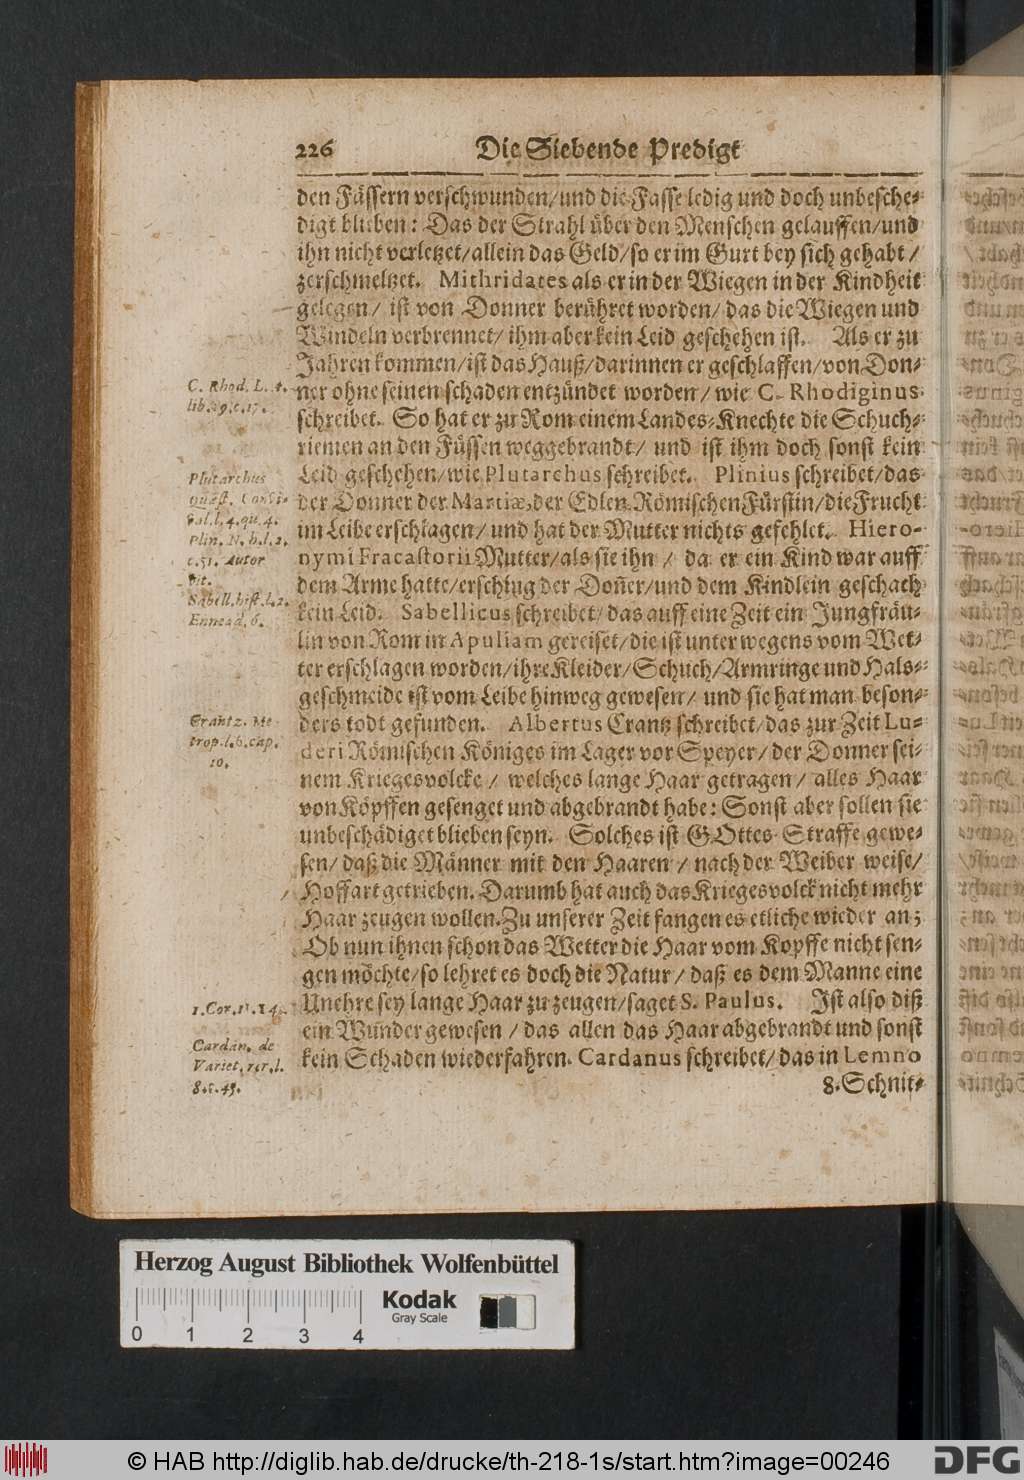 226 Die Siebende Predigt
den Fässern verschwunden/und die Fasse ledig und doch unbesche-
digt blieben: Das der Strahl über den Menschen gelauffen/und
ihn nicht verletzet/allein das Geld/so er im Gurt bey sich gehabt/
zerschmeltzet. Mithridates als er in der Wiegen in der Kindheit
gelegen/ ist von Donner berühret worden/ das die Wiegen und
Windeln verbrennet/ ihm aber kein Leid geschehen ist. Als er zu
Jahren kommen/ist das Hauß/darinnen er geschlaffen/von Don-
C. Rhod. L. A.
lib. 19. c. 17.
ner ohne seinen schaden entzündet worden/ wie C. Rhodiginus
schreibet. So hat er zu Rom einem Landes-Knechte die Schuch-
riemen an den Füssen weggebrandt/ und ist ihm doch sonst kein
Plutarchus
Leid geschehen/wie Plutarchus schreibet. Plinius schreibet/das
der Donner der Martiæ, der Edlen Römischen Fürstin/die Frucht
Plin. N. h. l. 2.
c. 51. Autor
vit.
im Leibe erschlagen/ und hat der Mutter nichts gefehlet. Hiero-
nymi Fracastorii Mutter/als sie ihn / da er ein Kind war auff
dem Arme hatte/erschlug der Doñer/und dem Kindlein geschach
Sabell. hist. l. 2.
Ennead. 6.
kein Leid. Sabellicus schreibet/das auff eine Zeit ein Jungfräu-
lin von Rom in Apuliam gereiset/die ist unter wegens vom Wet-
ter erschlagen worden/ihre Kleider/Schuch/Armringe und Hals-
geschmeide ist vom Leibe hinweg gewesen/ und sie hat man beson-
Crantz. Me-
trop. l. 6. cap.
10.
ders todt gefunden. Albertus Crantz schreibet/das zur Zeit Lu-
deri Römischen Königes im Lager vor Speyer/ der Donner sei-
nem Kriegesvolcke / welches lange Haar getragen/ alles Haar
von Köpffen gesenget und abgebrandt habe: Sonst aber sollen sie
unbeschädiget blieben seyn. Solches ist GOttes Straffe gewe-
sen/ daß die Männer mit den Haaren / nach der Weiber weise/
Hoffart getrieben. Darumb hat auch das Kriegesvolck nicht mehr
Haar zeugen wollen. Zu unserer Zeit fangen es etliche wieder an;
Ob nun ihnen schon das Wetter die Haar vom Kopffe nicht sen-
gen möchte/so lehret es doch die Natur/ daß es dem Manne eine
1. Cor. 11. 14.
Unehre sey lange Haar zu zeugen/saget S. Paulus. Ist also diß
ein Wunder gewesen / das allen das Haar abgebrandt und sonst
Cardan. de
Variet. rer. l.
8. c. 43.
kein Schaden wiederfahren. Cardanus schreibet/das in Lemno
8. Schnit-
Herzog August Bibliothek Wolfenbüttel
Kodak
Gray Scale
0 1 2 3 4
© HAB http://diglib.hab.de/drucke/th-218-1s/start.htm?image=00246
DFG